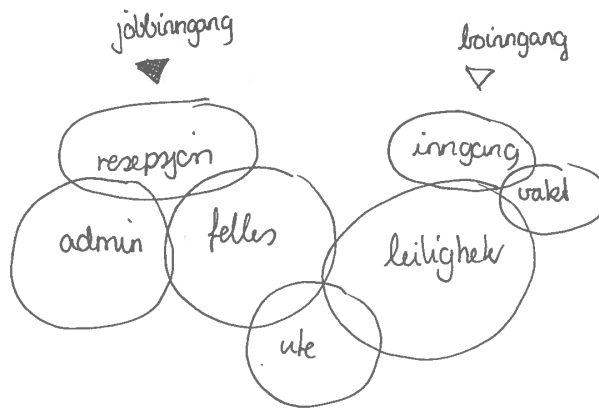 jobbinngang
boinngang
resepsjon
inngang
vakt
admin
felles
leiligheter
ute